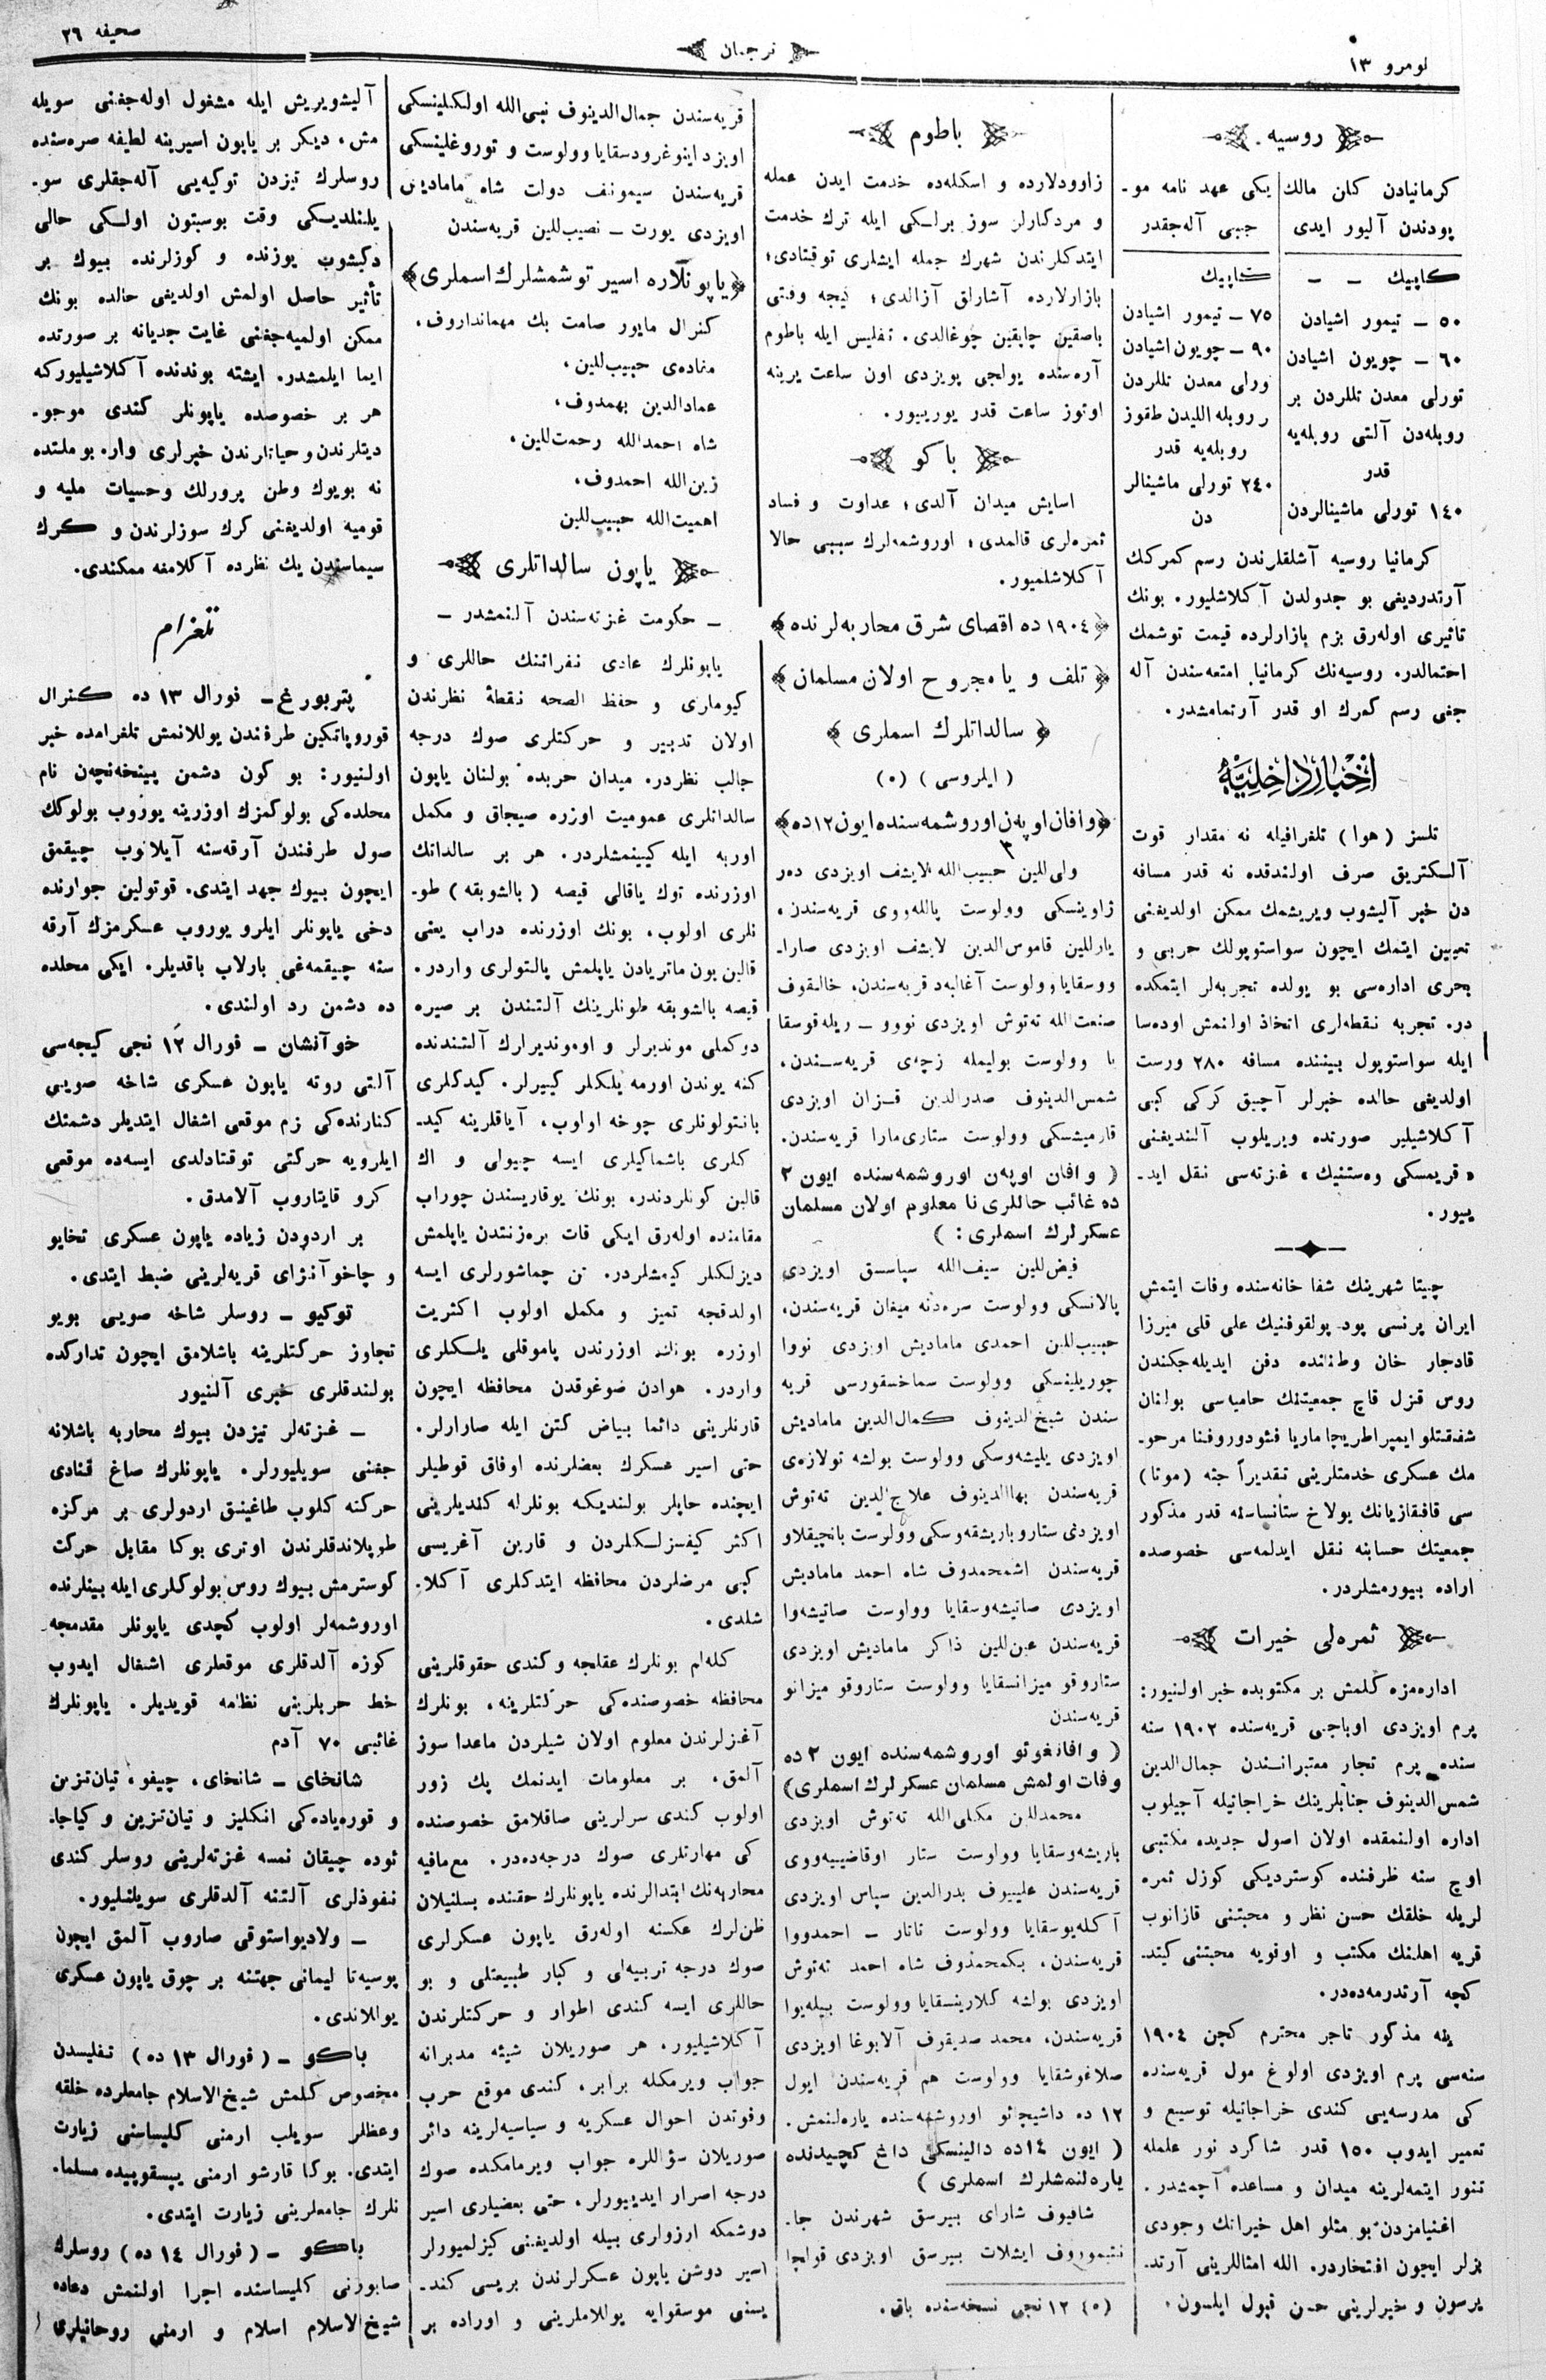 لومرو ١٣
ترجمان
صحیفه ٢٦
روسیه.
كرمانیادن كلن مالك
پودندن آلیور ایدی
كاپیك — —
٥٠ — تیمور اشیادن
٦٠ — چویون اشیادن
تورلی معدن تللردن بر
روبله‌دن آلتی روبله‌یه
قدر
١٤٠ تورلی ماشینالردن
یكی عهد نامه مو-
جبی آله‌جقدر
كاپیك
٧٥ — تیمور اشیادن
٩٠ — چویون اشیادن
ورلی معدن تللردن
ر روبله اللیدن طقوز
روبله‌یه قدر
٢٤٠ تورلی ماشینالر
دن
كرمانیا روسیه آشلقلرندن رسم كمركك
آرتدردیغی بو جدولدن آكلاشلیور. بونك
تاثیری اوله‌رق بزم بازارلرده قیمت توشمك
احتمالدر. روسیه‌نك كرمانیا امتعه‌سندن آله
جغی رسم كمرك او قدر آرتمامشدر.
اخبار داخلیه
تلسز (هوا) تلغرافیله نه مقدار قوت
آلكتریق صرف اولندقده نه قدر مسافه
دن خبر آلیشوب ویریشمك ممكن اولدیغنی
تعیین ایتمك ایچون سواستوپولك حربی و
بحری اداره‌سی بو یولده تجربه‌لر ایتمكده
در. تجربه نقطه‌لری اتخاذ اولنمش اوده‌سا
ایله سواستوپول بیننده مسافه ٢٨٠ ورست
اولدیغی حالده خبرلر آچیق كركی كبی
آكلاشیلیر صورتده ویریلوب آلندیغنی
«قریمسكی وه‌ستنیك» غزته‌سی نقل اید-
ییور.
چیتا شهرینك شفا خانه‌سنده وفات ایتمش
ایران پرنسی پود پولقوفنیك علی قلی میرزا
قادجار خان وطننده دفن ایدیله‌جكندن
روس قزل قاچ جمعیتنك حامیه‌سی بولنان
شفقتلو ایمپراطریچا ماریا فئودوروفنا مرحو-
مك عسكری خدمتلرینی تقدیراً جثه (موتا)
سی قافقازیانك یولاخ ستانساسنه قدر مذكور
جمعیتك حسابنه نقل ایدلمه‌سی خصوصده
اراده بیورمشلردر.
ثمره‌لی خیرات
اداره‌مزه كلمش بر مكتوبده خبر اولنیور:
پرم اویزدی اوباجی قریه‌سنده ١٩٠٢ سنه
سنده پرم تجار معتبرانندن جمال‌الدین
شمس‌الدینوف جنابلرینك خراجاتیله آچیلوب
اداره اولنمقده اولان اصول جدیده مكتبی
اوچ سنه ظرفنده كوستردیكی كوزل ثمره
لریله خلقك حسن نظر و محبتنی قازانوب
قریه اهلینك مكتب و اوقویه محبتنی كیتد-
كچه آرتدرمه‌ده‌در.
ینه مذكور تاجر محترم كچن ١٩٠٤
سنه‌سی پرم اویزدی اولوغ مول قریه‌سنده
كی مدرسه‌یی كندی خراجاتیله توسیع و
تعمیر ایدوب ١٥٠ قدر شاكرد نور علمله
تنور ایتمه‌لرینه میدان و مساعده آچمشدر.
اغنیامزدن بو مثلو اهل خیرانك وجودی
بزلر ایچون افتخاردر. الله امثاللرینی آرتد-
یرسون و خیرلرینی حسن قبول ایلسون.
باطوم
زاوودلارده و اسكله‌ده خدمت ایدن عمله
و مردكارلر سوز برلكی ایله ترك خدمت
ایتدكلرندن شهرك جمله ایشلری توقتادی؛
بازارلارده آشاراق آزالدی؛ كیجه وقتی
باصقین چابقین چوغالدی. تفلیس ایله باطوم
آره‌سنده یولجی پویزدی اون ساعت یرینه
اوتوز ساعت قدر یورییور.
باكو
اسایش میدان آلدی؛ عداوت و فساد
ثمره‌لری قالمدی؛ اوروشمه‌لرك سببی حالا
آكلاشلمیور.
﴿١٩٠٤ ده اقصای شرق محاربه‌لرنده﴾
﴿تلف و یا مجروح اولان مسلمان﴾
﴿سالداتلرك اسملری﴾
(ایلروسی) (٥)
﴿وافان‌اوپه‌ن‌اوروشمه‌سنده‌ایون١٢ده﴾
ولی‌للین حبیب‌الله لایشف اویزدی ده‌ر
ژاوینسكی وولوست یالله‌ووی قریه‌سندن،
یارللین قاموس‌الدین لایشف اویزدی صارا-
ووسقایا وولوست آغالبه‌د قریه‌سندن، خالقوف
صنعت‌الله ته‌توش اویزدی نووو — ریله‌قوسقا
یا وولوست بولیمله زچه‌ی قریه‌سندن،
شمس‌الدینوف صدرالدین قزان اویزدی
قارمیشسكی وولوست ستاری‌مارا قریه‌سندن.
(وافان اوپه‌ن اوروشمه‌سنده ایون ٢
ده غائب حاللری نا معلوم اولان مسلمان
عسكرلرك اسملری:)
فیض‌للین سیف‌الله سپاسق اویزدی
پالانسكی وولوست سره‌دنه میغان قریه‌سندن،
حبیب‌للین احمدی مامادیش اویزدی نووا
چوریلینسكی وولوست سماخسقورسی قریه
سندن شیخ‌الدینوف كمال‌الدین مامادیش
اویزدی یلیشه‌وسكی وولوست بولشه تولازه‌ی
قریه‌سندن بهاالدینوف علاج‌الدین ته‌توش
اویزدی ستاروباریشقه‌وسكی وولوست بانچیقلاو
قریه‌سندن اشمحمدوف شاه احمد مامادیش
اویزدی صاتیشه‌وسقایا وولوست صاتیشه‌وا
قریه‌سندن عین‌للین ذاكر مامادیش اویزدی
ستاروقو میزانسقایا وولوست ستاروقو میزانو
قریه‌سندن
(وافانغوئو اوروشمه‌سنده ایون ٢ ده
وفات اولمش مسلمان عسكرلرك اسملری)
محمدللین مكلی‌الله ته‌توش اویزدی
باریشه‌وسقایا وولوست ستار اوقاضییه‌ووی
قریه‌سندن علییوف بدرالدین سپاس اویزدی
آكله‌یوسقایا وولوست تاتار — احمدووا
قریه‌سندن، بكمحمدوف شاه احمد ته‌توش
اویزدی بولشه كلارینسقایا وولوست بیله‌یوا
قریه‌سندن، محمد صدیقوف آلابوغا اویزدی
صلاغوشقایا وولوست هم قریه‌سندن ایول
١٢ ده داشیچائو اوروشمه‌سنده یاره‌لنمش.
(ایون ١٤ده دالینسكی داغ كچیدنده
یاره‌لنمشلرك اسملری)
شافیوف شارای بیرسق شهرندن جا-
نتیموروف ایشلات بیرسق اویزدی قولچا
(٥) ١٢ نجی نسخه‌سنده باق.
قریه‌سندن جمال‌الدینوف نبی‌الله اولكلینسكی
اویزد اینوغرودسقایا وولوست و توروغلینسكی
قریه‌سندن سیمونف دولت شاه مامادیش
اویزدی یورت — نصیب‌للین قریه‌سندن
﴿یاپونلاره اسیر توشمشلرك اسملری﴾
كنرال مایور صامت بك مهمانداروف،
مناده‌ی حبیب‌للین،
عمادالدین بهمدوف،
شاه احمدالله رحمت‌للین،
زین‌الله احمدوف،
اهمیت‌الله حبیب‌للین
یاپون سالداتلری
— حكومت غزته‌سندن آلنمشدر —
یاپونلرك عادی نفراتنك حاللری و
كیوماری و حفظ الصحه نقطهٔ نظرندن
اولان تدبیر و حركتلری صوك درجه
جالب نظردر. میدان حربده بولنان یاپون
سالداتلری عمومیت اوزره صیجاق و مكمل
اوربه ایله كیینمشلردر. هر بر سالداتك
اوزرنده توك یاقالی قیصه (بالشوبقه) طو-
نلری اولوب، بونك اوزرنده دراب یعنی
قالین یون ماتریادن یاپلمش پالتولری واردر.
قیصه بالشوبقه طونلرینك آلتندن بر صیره
دوكملی موندیرلر و اوموندیرارك آلتندنده
كنه یوندن اورمه یلكلر كییرلر. كیدكلری
پانتولونلری چوخه اولوب، آیاقلرینه كید-
كلری باشماكیلری ایسه چیولی و اك
قالین كونلردندر. بونك یوقاریسندن چوراب
مقامنده اوله‌رق ایكی قات بره‌زنتدن یاپلمش
دیزلكلر كیمشلردر. تن چماشورلری ایسه
اولدقجه تمیز و مكمل اولوب اكثریت
اوزره بونك اوزرندن پاموقلی یلكلری
واردر. هوادن صوغوقدن محافظه ایچون
قارنلرینی دائما بیاض كتن ایله صارارلر.
حتی اسیر عسكرك بعضلرنده اوفاق قوطیلر
ایچنده حاپلر بولندیكه بونلرله كندیلرینی
اكثر كیفسزلكلردن و قارین آغریسی
كبی مرضلردن محافظه ایتدكلری آكلا-
شلدی.
كله‌لم بونلرك عقلجه و كندی حقوقلرینی
محافظه خصوصنده‌كی حركتلرینه، بونلرك
آغزلرندن معلوم اولان شیلردن ماعدا سوز
آلمق، بر معلومات ایدنمك پك زور
اولوب كندی سرلرینی صاقلامق خصوصنده
كی مهارتلری صوك درجه‌ده‌در. مع‌مافیه
محاربه‌نك ابتدالرنده یاپونلرك حقنده بسلنیلان
ظن‌لرك عكسنه اوله‌رق یاپون عسكرلری
صوك درجه تربیه‌لی و كبار طبیعتلی و بو
حاللری ایسه كندی اطوار و حركتلرندن
آكلاشیلیور. هر صوریلان شیئه مدبرانه
جواب ویرمكله برابر، كندی موقع حرب
وفوتدن احوال عسكریه و سیاسیه‌لرینه دائر
صوریلان سؤاللره جواب ویرمامكده صوك
درجه اصرار ایدییورلر، حتی بعضیلری اسیر
دوشمكه ارزولری بیله اولدیغنی كیزلمیورلر
اسیر دوشن یاپون عسكرلرندن بریسی كند-
یسنی موسقوایه یوللاملرینی و اوراده بر
آلیشویریش ایله مشغول اوله‌جغنی سویله
مش، دیكر بر یاپون اسیرینه لطیفه صره‌سنده
روسلرك تیزدن توكیه‌یی آله‌جقلری سو-
یلنلدیكی وقت بوسبتون اولكی حالی
دكیشوب یوزنده و كوزلرنده بییوك بر
تأثیر حاصل اولمش اولدیغی حالده بونك
ممكن اولمیه‌جغنی غایت جدیانه بر صورتده
ایما ایلمشدر. ایشته بوندنده آكلاشیلیوركه
هر بر خصوصده یاپونلر كندی موجو-
دیتلرندن و حیاتلرندن خبرلری وار. بو ملتده
نه بویوك وطن پرورلك وحسیات ملیه و
قومیه اولدیغنی كرك سوزلرندن و كرك
سیماسندن یك نظرده آكلامغه ممكندی.
تلغرام
پتربورغ — فورال ١٣ ده كنرال
قوروپاتكین طرفندن یوللانمش تلغرامده خبر
اولنیور: بو كون دشمن پینخه‌نچه‌ن نام
محلده‌كی بولوكمزك اوزرینه یوروب بولوكك
صول طرفندن آرقه‌سنه آیلانوب چیقمق
ایچون بییوك جهد ایتدی. قوتولین جوارنده
دخی یاپونلر ایلرو یوروب عسكرمزك آرقه
سنه چیقمه‌غی یارلاب باقدیلر. ایكی محلده
ده دشمن رد اولندی.
خوآنشان — فورال ١٢ نجی كیجه‌سی
آلتی روته یاپون عسكری شاخه صویی
كنارنده‌كی زم موقعی اشغال ایتدیلر دشمنك
ایلرویه حركتی توقتادلدی ایسه‌ده موقعی
كرو قایتاروب آلامدق.
بر اردودن زیاده یاپون عسكری تخایو
و چاخوآنزای قریه‌لرینی ضبط ایتدی.
توكیو — روسلر شاخه صویی بویو
تجاوز حركتلرینه باشلامق ایچون تداركده
بولندقلری خبری آلنیور
— غزته‌لر تیزدن بییوك محاربه باشلانه
جغنی سویلیورلر. یاپونلرك صاغ قنادی
حركته كلوب طاغینق اردولری بر مركزه
طوپلاندقلرندن اوتری بوكا مقابل حركت
كوسترمش بییوك روس بولوكلری ایله بینلرنده
اوروشمه‌لر اولوب كچدی یاپونلر مقدمجه
كوزه آلدقلری موقعلری اشغال ایدوب
خط حربلرینی نظامه قویدیلر. یاپونلرك
غائبی ٧٠ آدم
شانخای — شانخای، چیفو، تیان‌تزین
و قوره‌یاده‌كی انكلیز و تیان‌تزین و كیاجا-
ئوده چیقان نمسه غزته‌لرینی روسلر كندی
نفوذلری آلتنه آلدقلری سویلنلیور.
— ولادیواستوقی صاروب آلمق ایچون
پوسیه‌تا لیمانی جهتنه بر چوق یاپون عسكری
یوللاندی.
باكو — (فورال ١٣ ده) تفلیسدن
مخصوص كلمش شیخ‌الاسلام جامعلرده خلقه
وعظلر سویلب ارمنی كلیساسنی زیارت
ایتدی. بوكا قارشو ارمنی پیسقوپیده مسلما-
نلرك جامعلرینی زیارت ایتدی.
باكو — (فورال ١٤ ده) روسلرك
صابورنی كلیساسنده اجرا اولنمش دعاده
شیخ‌الاسلام اسلام و ارمنی روحانیلری